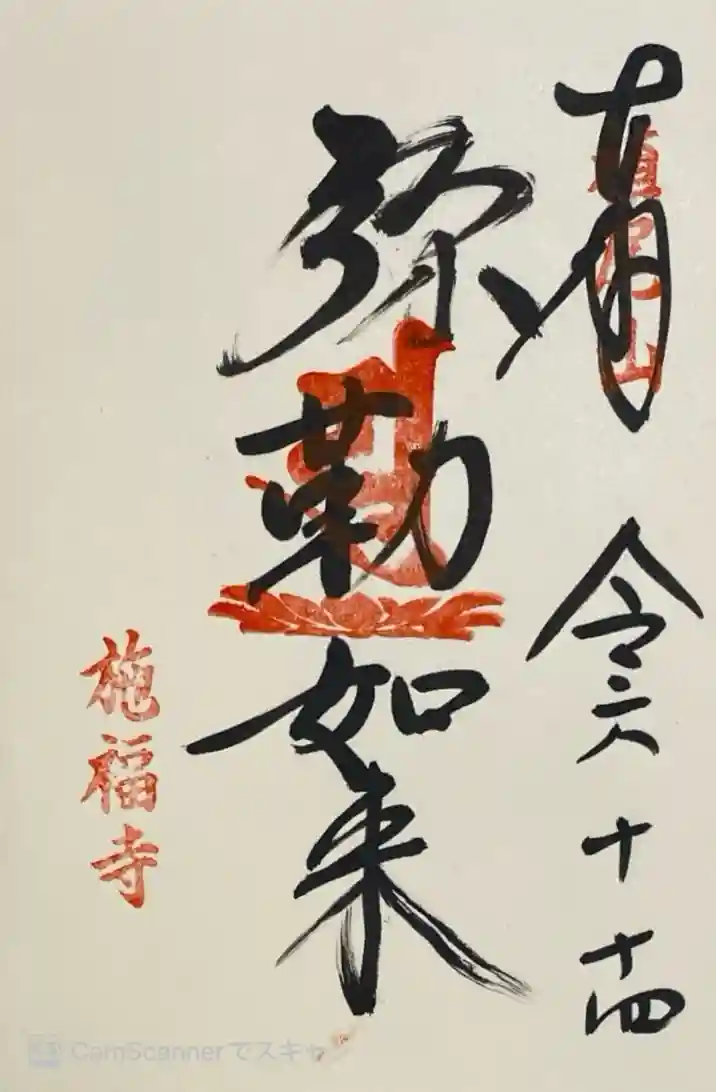 奉拝
槇尾山
令六 十 十四
弥勒如来
施福寺
CamScannerでスキャン